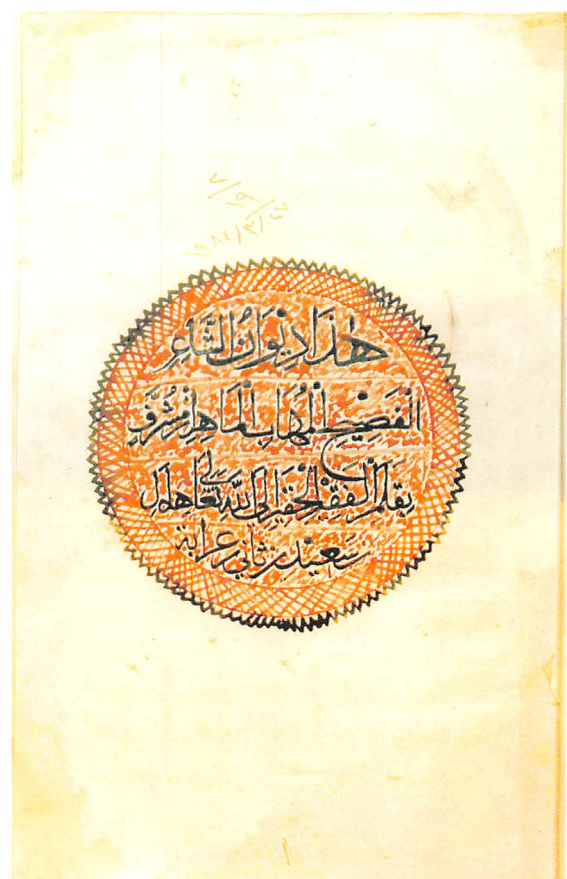 هذا ديوان الشاعر
الفصيح المهاب الماهر مشرف
بقلم الفقير الحقير إلى الله تعالى هلال
سعيد بن ثاني عرابة